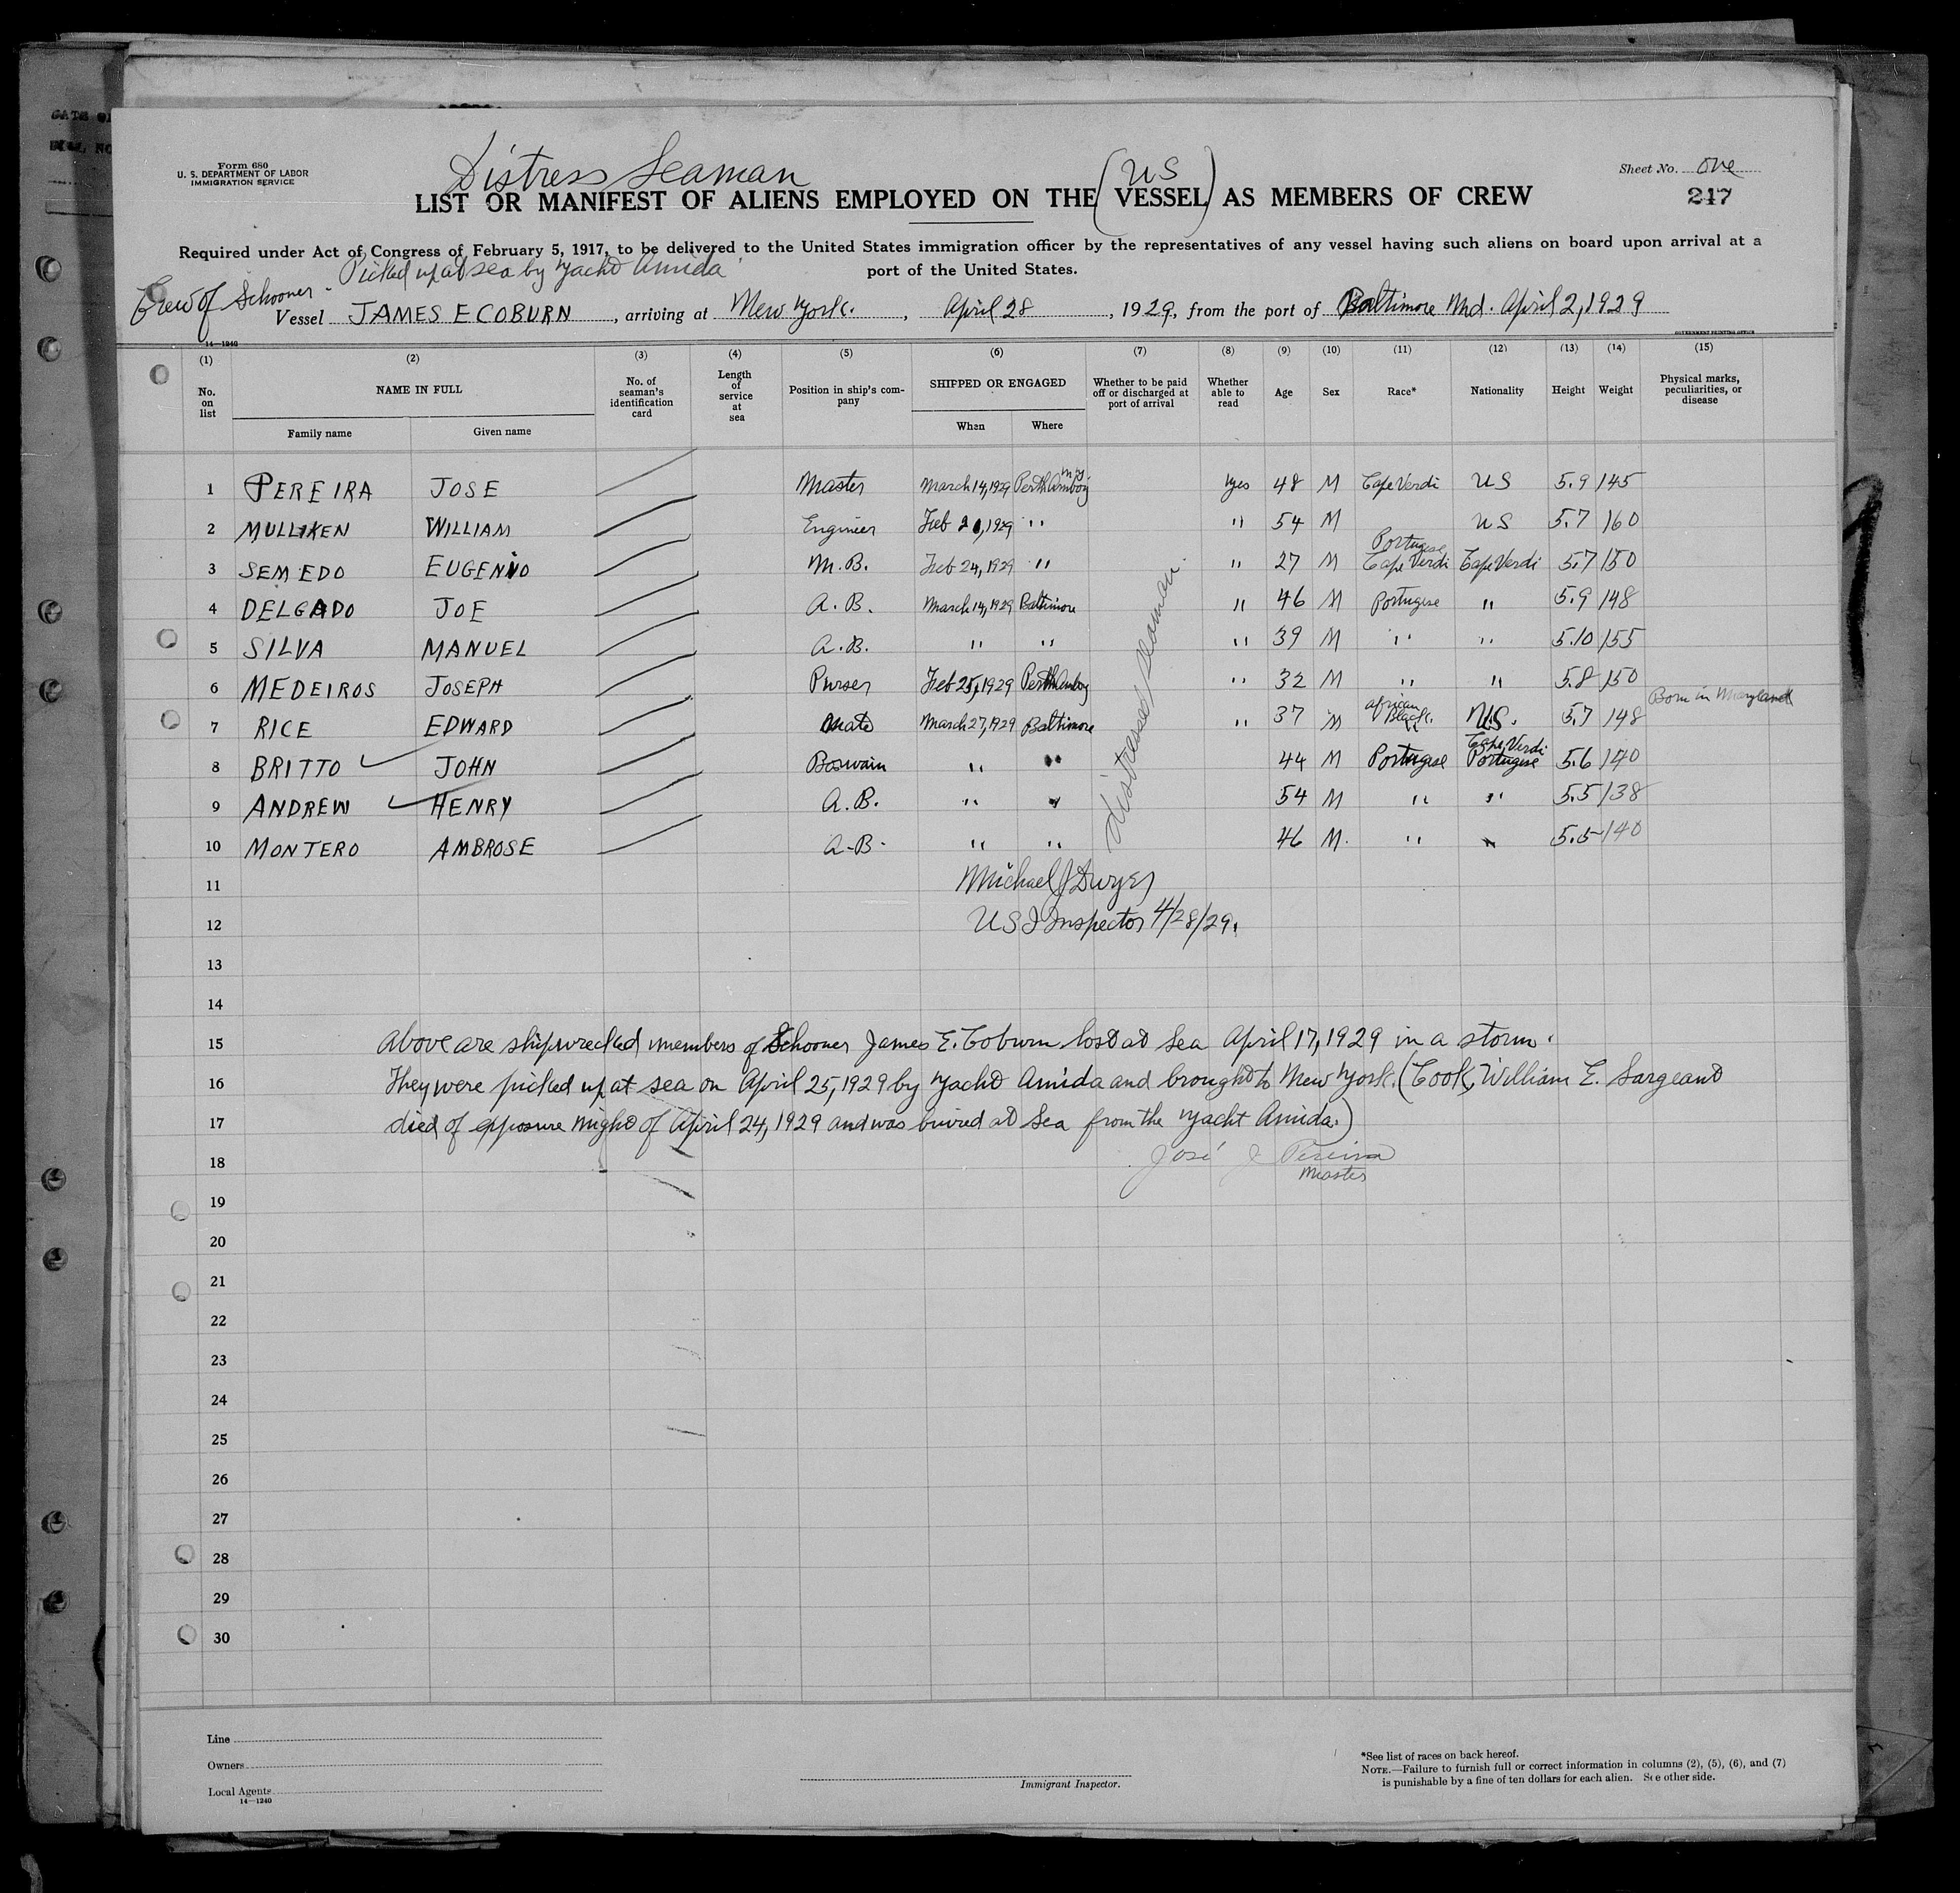 Form 680
U. S. DEPARTMENT OF LABOR
IMMIGRATION SERVICE
Distress Seaman
(US)
Sheet No. One
LIST OR MANIFEST OF ALIENS EMPLOYED ON THE VESSEL AS MEMBERS OF CREW
247
Required under Act of Congress of February 5, 1917, to be delivered to the United States immigration officer by the representatives of any vessel having such aliens on board upon arrival at a
port of the United States.
Crew of Schooner - Picked up at sea by Yacht Amida
Vessel JAMES E COBURN, arriving at New York., April 28, 1929, from the port of Baltimore Md. April 2, 1929
14—1240
GOVERNMENT PRINTING OFFICE
(1) (2) (3) (4) (5) (6) (7) (8) (9) (10) (11) (12) (13) (14) (15)
No. on list NAME IN FULL No. of seaman's identification card Length of service at sea Position in ship's company SHIPPED OR ENGAGED Whether to be paid off or discharged at port of arrival Whether able to read Age Sex Race* Nationality Height Weight Physical marks, peculiarities, or disease
Family name Given name When Where
1 PEREIRA JOSE Master March 14, 1929 Perth Amboy yes 48 M Cape Verdi US 5.9 145
2 MULLIKEN WILLIAM Engineer Feb 20, 1929 " " 54 M US 5.7 160
3 SEMEDO EUGENIO M.B. Feb 24, 1929 " " 27 M Portugese Cape Verdi Cape Verdi 5.7 150
4 DELGADO JOE A.B. March 14, 1929 Baltimore " 46 M Portugese " 5.9 148
5 SILVA MANUEL A.B. " " " 39 M " " 5.10 155
6 MEDEIROS JOSEPH Purser Feb 25, 1929 Perth Amboy " 32 M " " 5.8 150
7 RICE EDWARD Mate March 27, 1929 Baltimore " 37 M african Black. U.S. 5.7 148 Born in Maryland
8 BRITTO JOHN Boswain " " 44 M Portugese Cape Verdi Portugese 5.6 140
9 ANDREW HENRY A.B. " " 54 M " " 5.5 138
10 MONTERO AMBROSE A.B. " " 46 M. " " 5.5 140
distressed seaman.
11 Michael J Dwyer
12 USI Inspector 4/28/29.
13
14
15 Above are shipwrecked members of Schooner James E. Coburn lost at sea April 17, 1929 in a storm.
16 They were picked up at sea on April 25, 1929 by Yacht Amida and brought to New York. (Cook, William E. Sargeant
17 died of exposure night of April 24, 1929 and was buired at sea from the yacht Amida.)
18 José J Pereira
Master
19
20
21
22
23
24
25
26
27
28
29
30
Line
Owners
Local Agents
14—1240
Immigrant Inspector.
*See list of races on back hereof.
NOTE.—Failure to furnish full or correct information in columns (2), (5), (6), and (7)
is punishable by a fine of ten dollars for each alien. See other side.